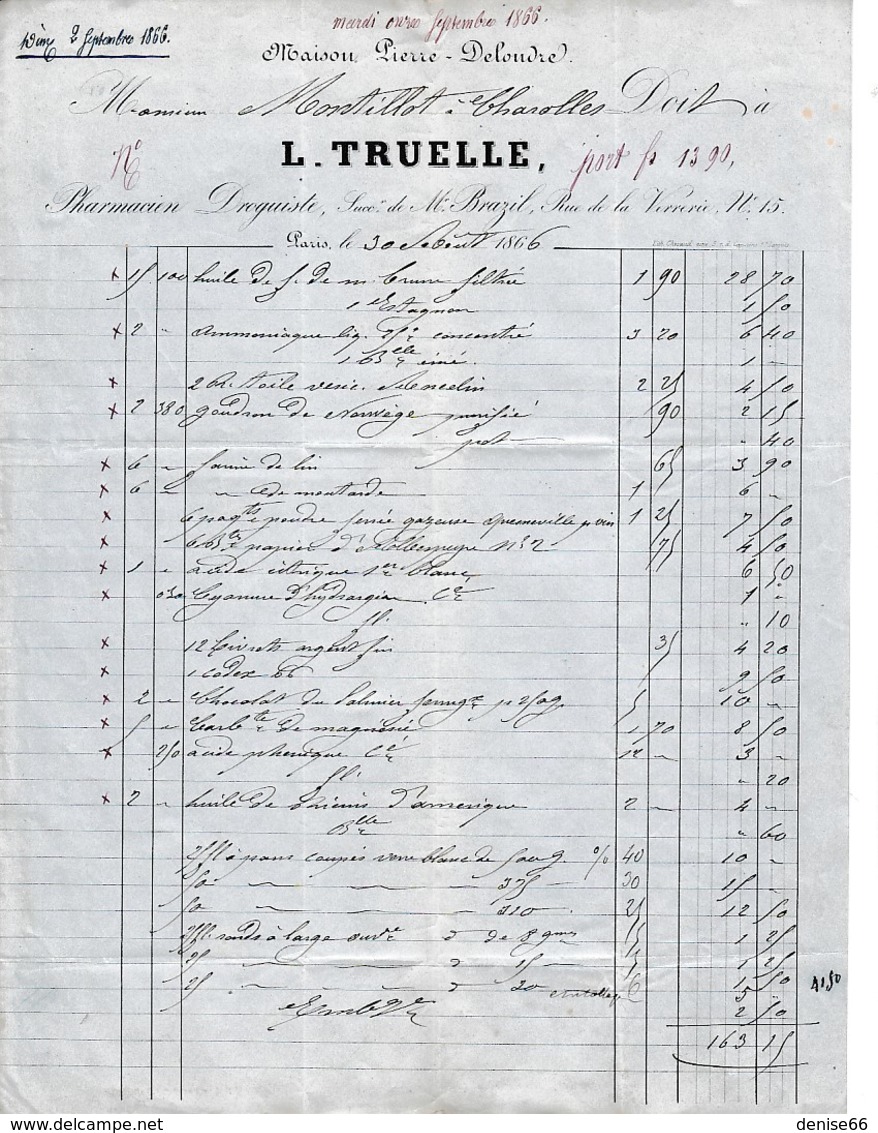 mardi onze Septembre 1866.
Dim 2 Septembre 1866.
Maison Pierre-Delondre.
Monsieur Montillot à Charolles Doit à
L. TRUELLE,
No port fs 13 90,
Pharmacien Droguiste, Succr. de Mr. Brazil, Rue de la Verrerie, No. 15.
Paris, le 30 Août 1866
x 15 100 huile de f. de m. brune filtrée 1 90 28 70
1 Estagnon 1 50
x 2 " ammoniaque liq. concentré 3 20 6 40
1 Blle émé. 1 -
x 2 toile vesic. 2 25 4 50
x 2 380 goudron de Norvège purifié 90 2 15
pot " 40
x 6 " farine de lin 65 3 90
x 6 " " de moutarde 1 6 "
x 6 paqts poudre ferrée gazeuse Quesneville p vin 1 25 7 50
x 6 Btes papier d'Albespeyre No 2 75 4 50
x 1 " acide citrique 1er blanc 6 50
x 030 Cyanure d'hydrargire 1 "
fl. " 10
x 12 livrets argent fin 35 4 20
x 1 codex 66 9 50
x 2 " Chocolat du Palmier p 250g. 5 10 "
x 5 " Carbte de magnésie 1 70 8 50
x 250 acide phenique 12 " 3 "
fl. " 20
x 2 " huile de ricinis d'amerique 2 " 4 "
Blle " 60
25 fl à pans coupés verre blanc de 500 g. % 40 10 "
50 - - - 375 - 30 15 "
50 - - - 310 - 25 12 50
25 fl. ronds à large ouvre d de 8 gmes 5 1 25
25 - - d 15 - 5 1 25
25 - - d 20 6 1 50
5 "
Embge 2 50
41 50
163 15
denise66